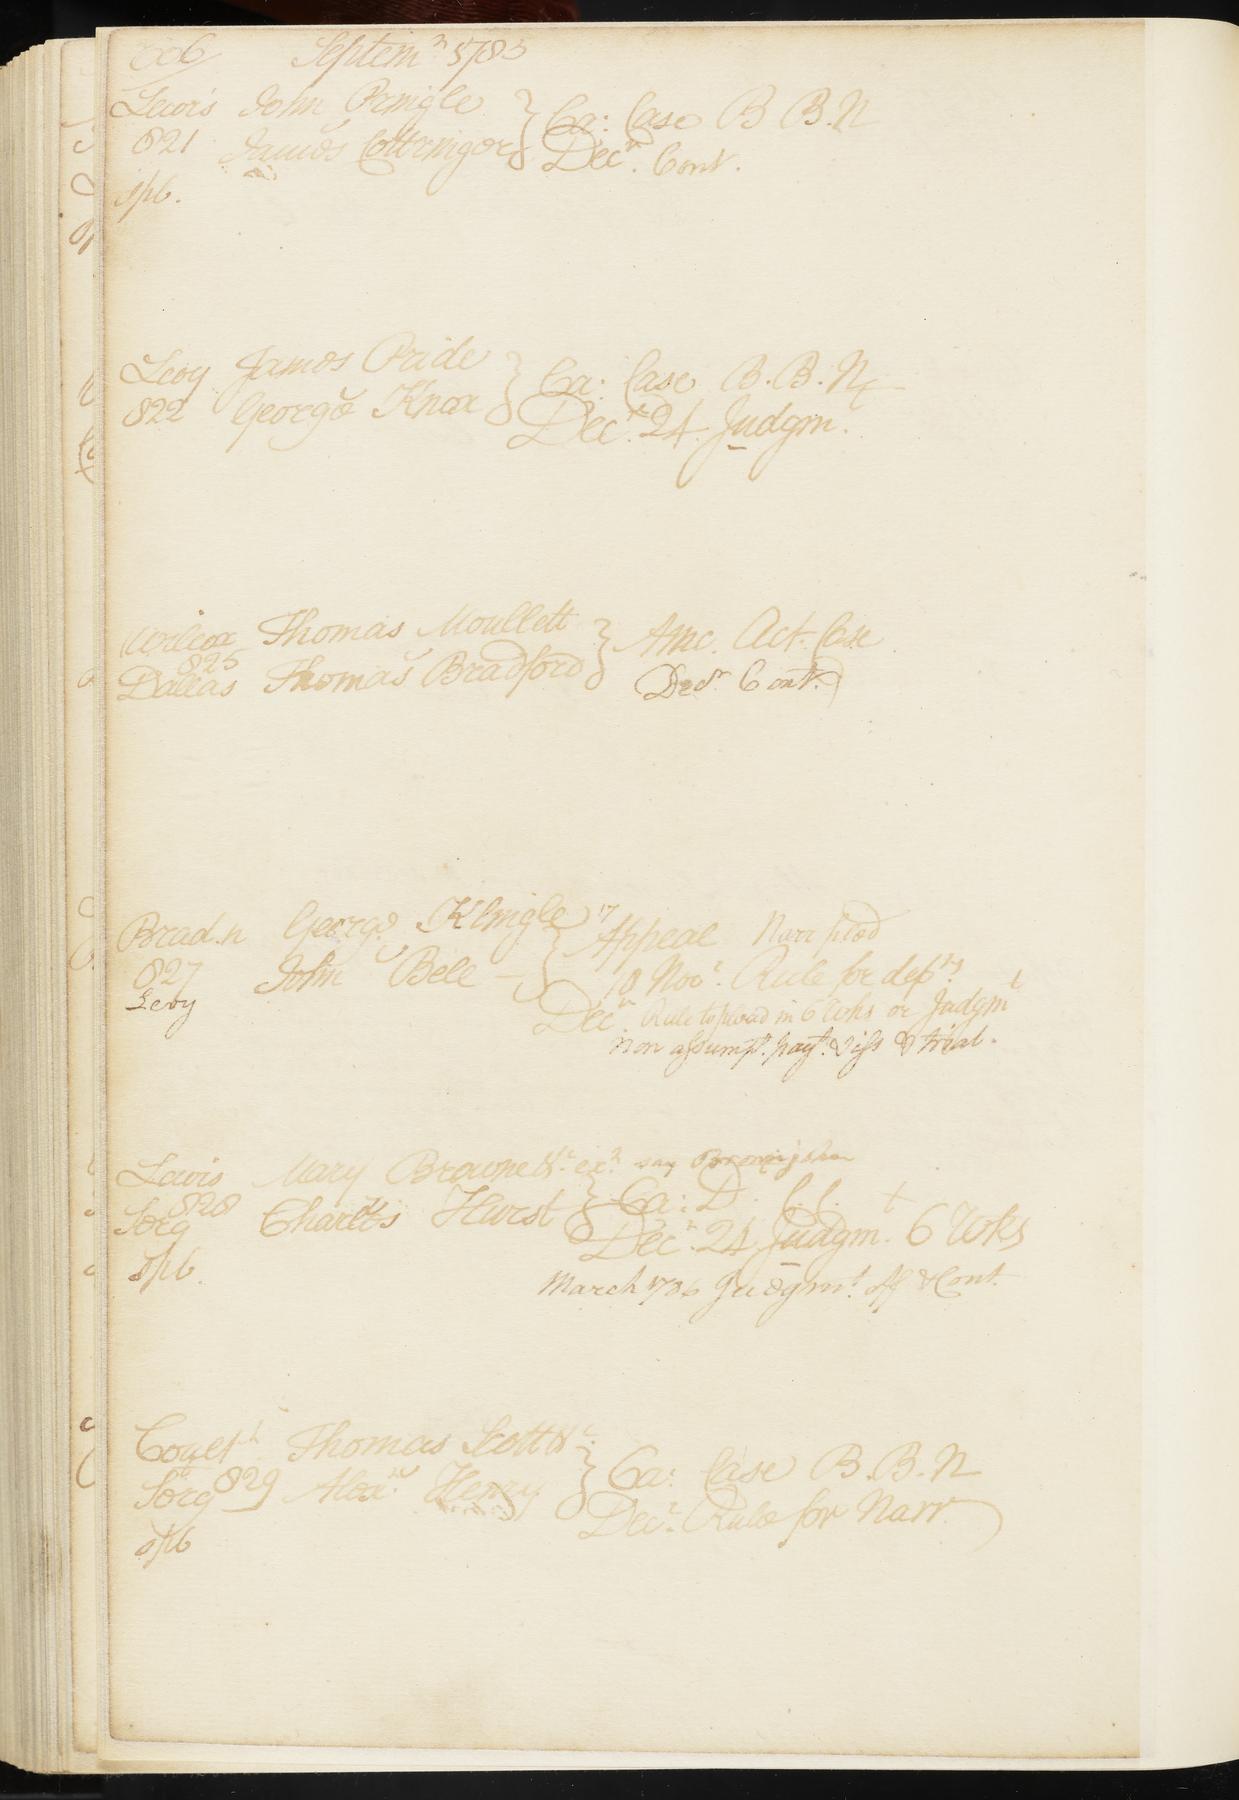 Septem.r 1785
Lewis John Pringle } Ca: Case B B.N
821 James Cottringer } Dec.r Cont.
spb.
Levy James Pride } Ca: Case B.B.N
822 George Knox } Dec.r 24. Judgm.t
Wilcox Thomas Moullett } Amc. Act. Case
825
Dallas Thomas Bradford } Decr. Cont.
Brad.n George Klingle } Appeal Narr filed
827 John Bell } 10 Nov.r Rule for dep.ns
Levy Dec.r Rule to plead in 6 Wks or Judgm.t
non assumpt. paym.t & iss & trial.
Lewis Mary Browne &c. ex.x say
828 } Ca: D.
Serg Charles Hurst } Dec.r 24 Judgm.t 6 Wks
spb. March 1786 Judgm.t & Cont.
Thomas Scott &c. } Ca: Case B.B.N
Serg 829 Alex.r Henry } Dec.r Rule for Narr
spb